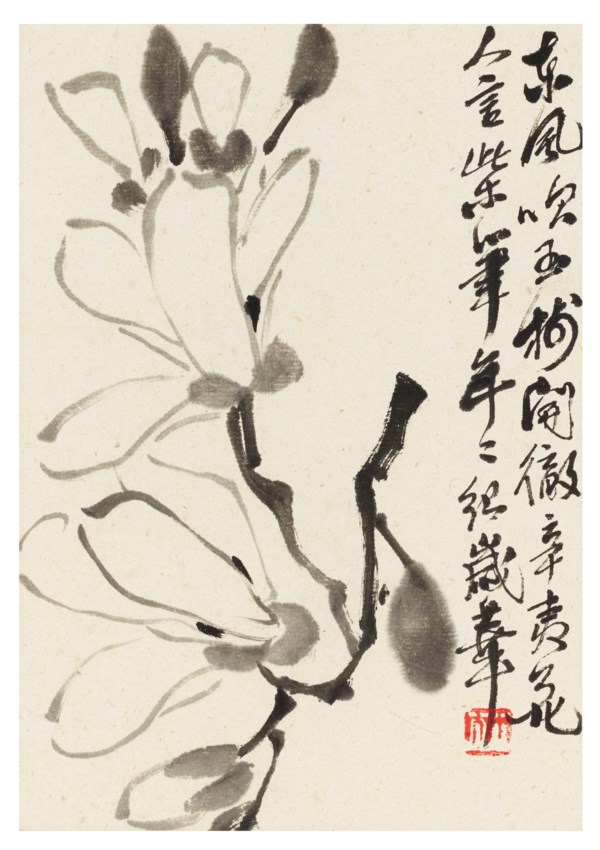 東風吹玉樹開徹辛夷花
人言此木筆年々紀歲華